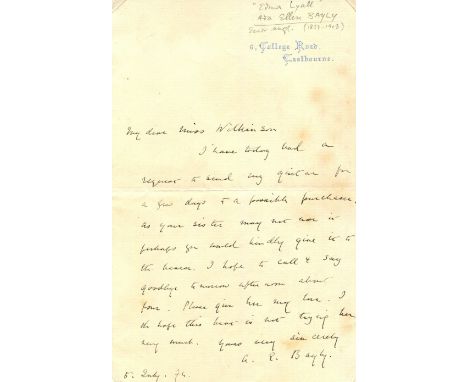 "Edna Lyall"
Ada Ellen BAYLY
(1857-1903)
6, College Road,
Eastbourne.
My dear Miss Wilkinson
I have today had a
request to send my guitar for
a few days to a possible purchaser,
as your sister may not use it
perhaps you would kindly give it to
the bearer. I hope to call & say
goodbye tomorrow afternoon about
four. Please give her my love. I
do hope this heat is not trying her
very much. Yours very sincerely
A. E. Bayly.
5. July.